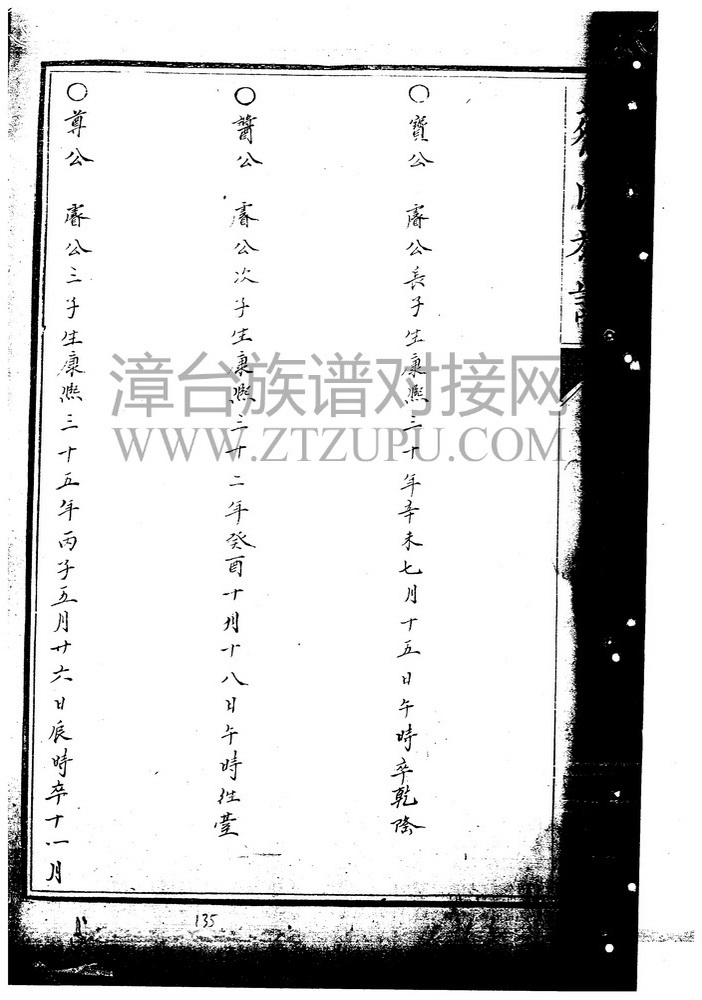 ○寶公 睿公長子生康熙三十年辛未七月十五日午時卒乾隆
○賛公 睿公次子生康熙三十二年癸酉十月十八日午時往臺
○尊公 睿公三子生康熙三十五年丙子五月廿六日辰時卒十一月
漳台族谱对接网
WWW.ZTZUPU.COM
135